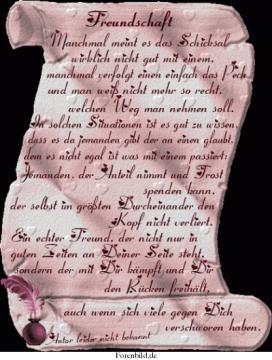 Freundschaft
Manchmal meint es das Schicksal
wirklich nicht gut mit einem,
manchmal verfolgt einen einfach das Pech
und man weiß nicht mehr so recht,
welchen Weg man nehmen soll.
In solchen Situationen ist es gut zu wissen,
dass es da jemanden gibt der an einen glaubt,
dem es nicht egal ist was mit einem passiert:
Jemanden, der Anteil nimmt und Trost
spenden kann,
der selbst im größten Durcheinander den
Kopf nicht verliert,
Ein echter Freund, der nicht nur in
guten Zeiten an Deiner Seite steht,
sondern der mit Dir kämpft und Dir
den Rücken freihält,
auch wenn sich viele gegen Dich
verschworen haben.
Autor leider nicht bekannt
Forenbild.de